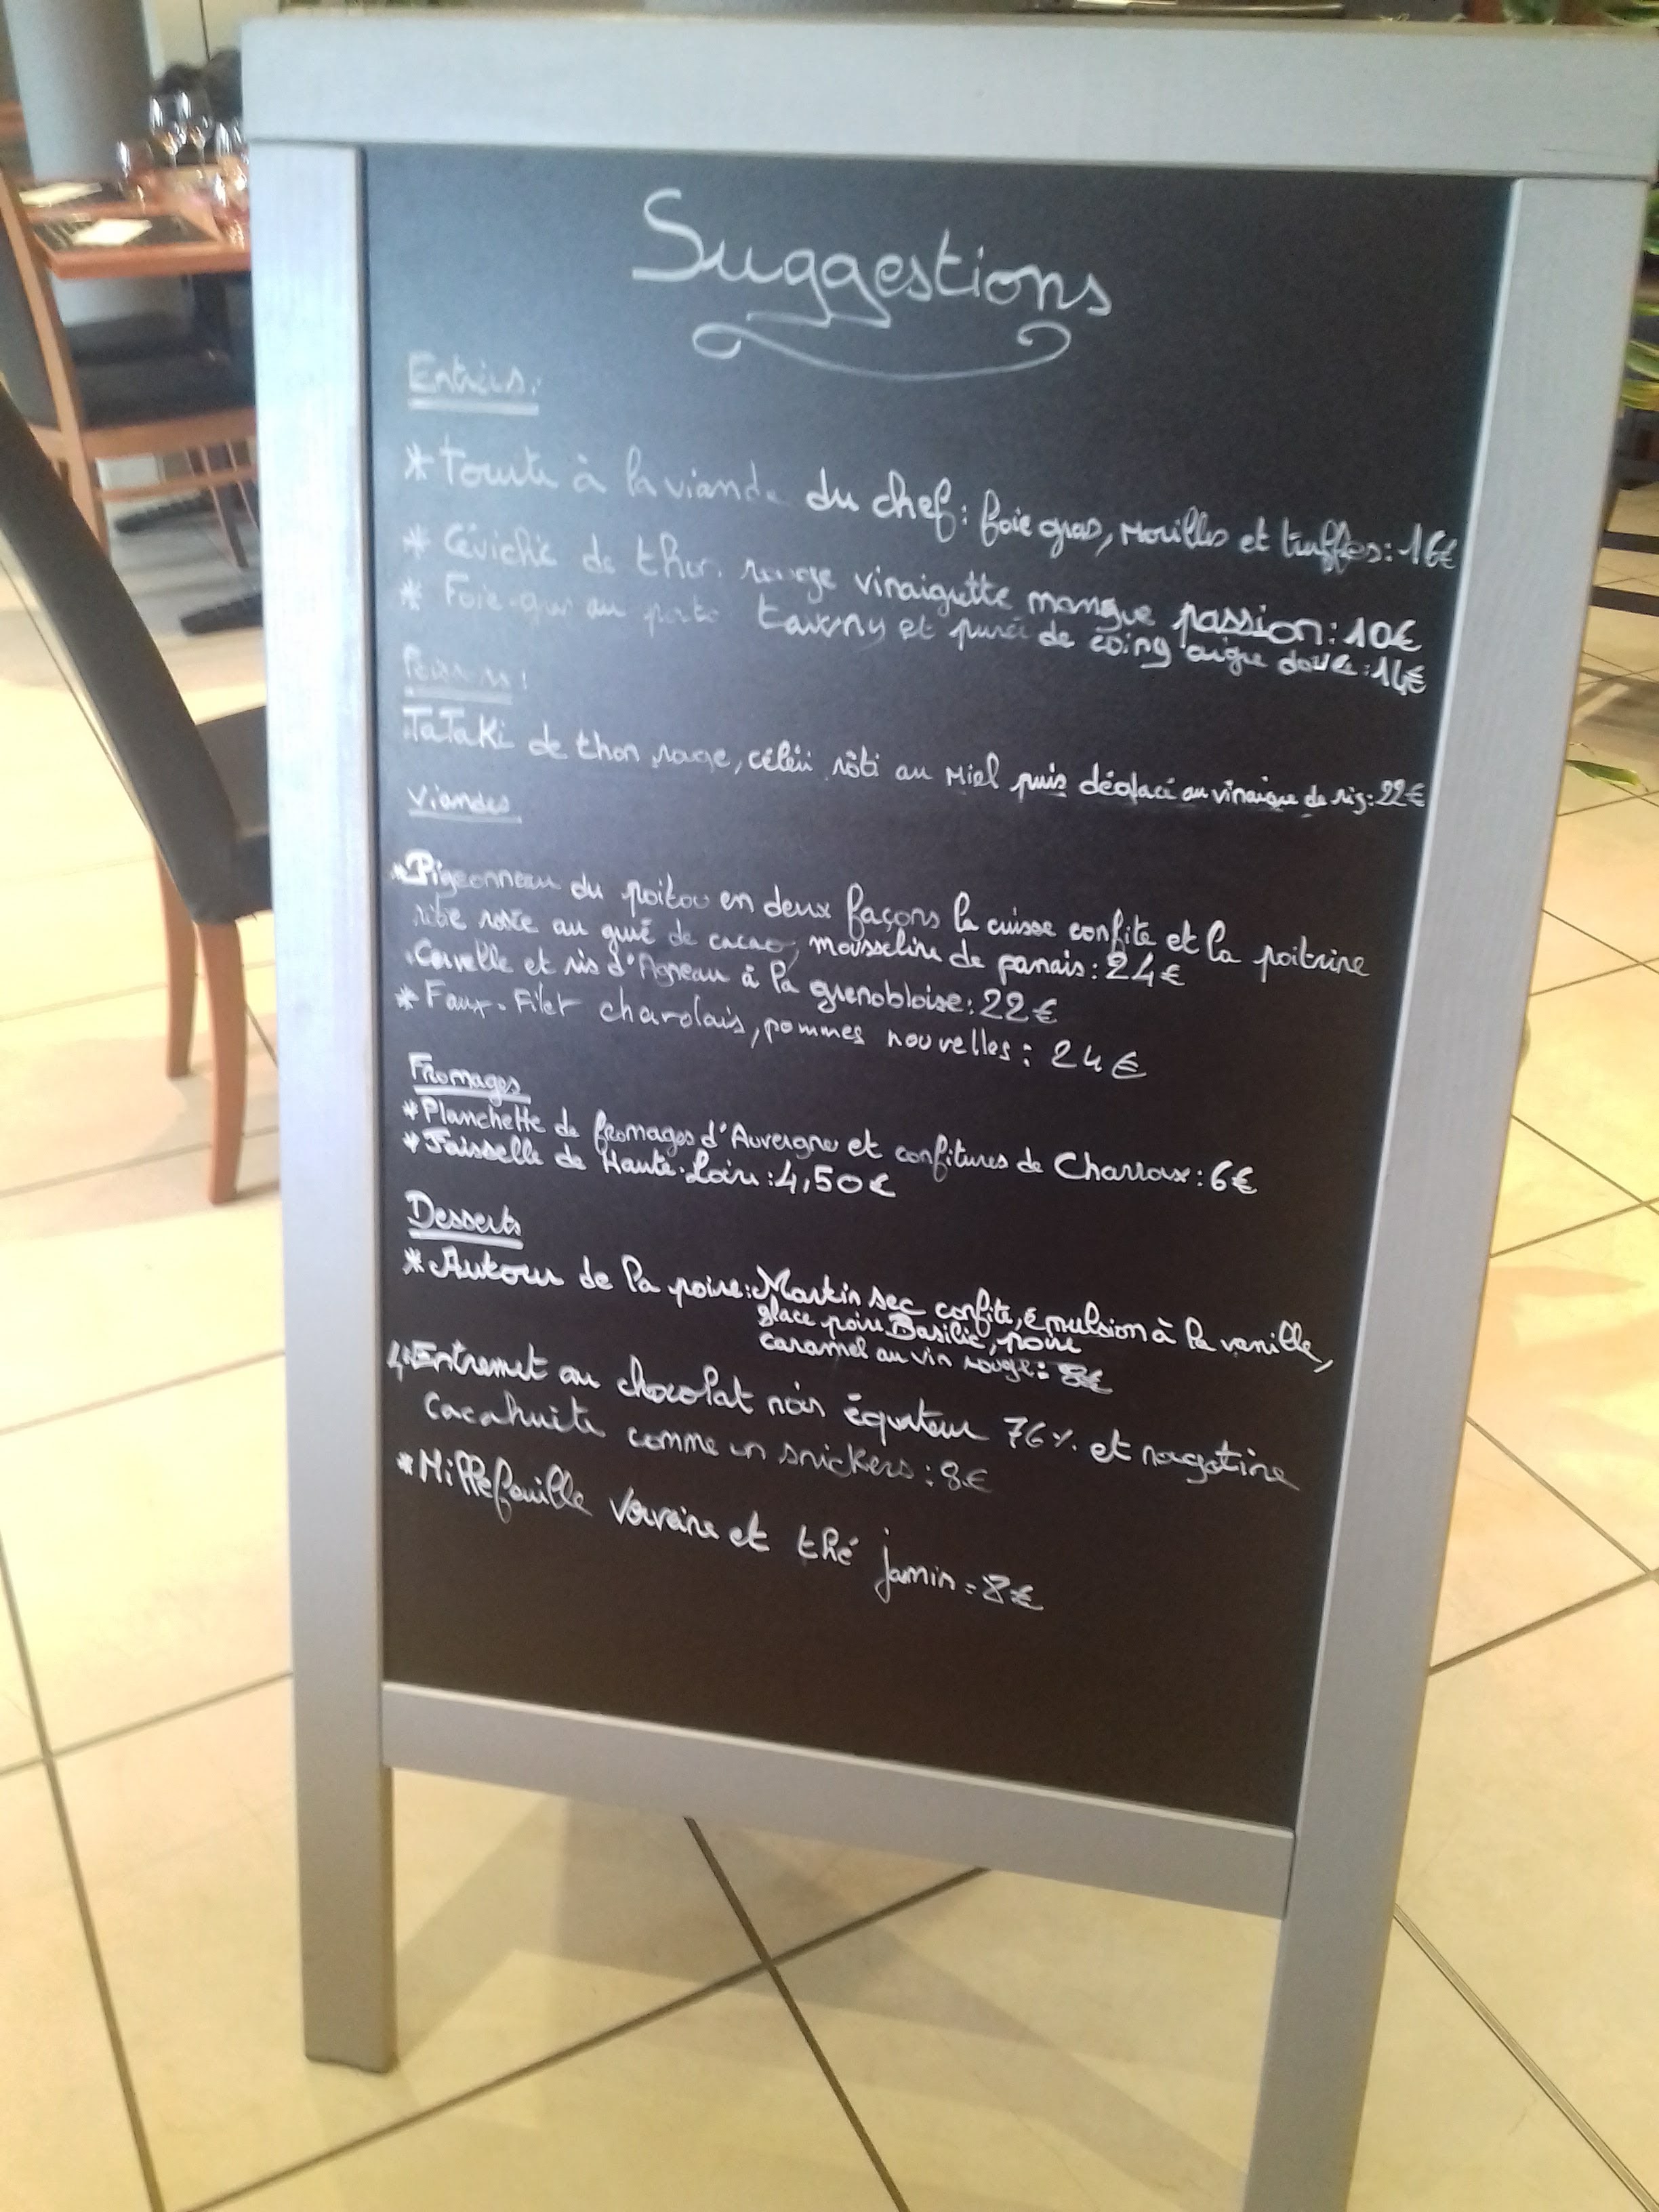 Suggestions
Entrées:
* Tourte à la viande du chef: foie gras, Morilles et truffes: 16€
* Céviché de thon rouge vinaigrette mangue passion: 10€
* Foie-gras au porto tawny et purée de coing aigre douce: 14€
Poissons:
TaTaKi de thon rouge, céleri rôti au Miel puis déglacé au vinaigre de riz: 22€
Viandes
* Pigeonneau du poitou en deux façons la cuisse confite et la poitrine
rôtie rosée au grué de cacao, mousseline de panais: 24€
Cervelle et ris d'Agneau à la grenobloise: 22€
* Faux-Filet charolais, pommes nouvelles: 24€
Fromages
* Planchette de fromages d'Auvergne et confitures de Charroux: 6€
* Faisselle de Haute-Loire: 4,50€
Desserts
* Autour de la poire: Martin sec confite, émulsion à la vanille,
glace poire Basilic, poire
caramel au vin rouge: 8€
Entremet au chocolat noir équateur 76% et nougatine
cacahuète comme un snickers: 8€
* Millefeuille Verveine et thé jamin = 8€